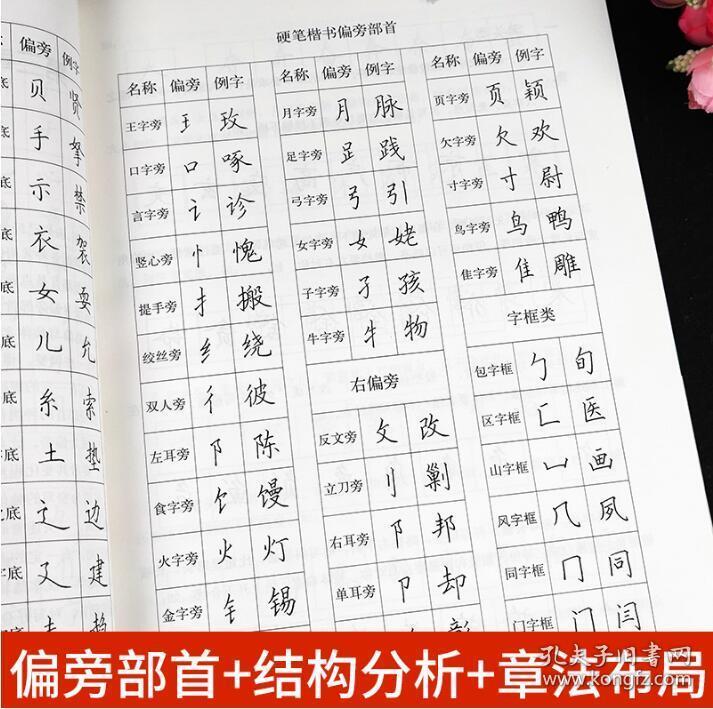 硬笔楷书偏旁部首
偏旁 例字
底 贝 贤
底 手 拏
底 示 禁
底 衣 袈
底 女 耍
底 儿 允
底 糸 索
底 土 垫
底 辶 边
字底 廴 建
名称 偏旁 例字
王字旁 王 玫
口字旁 口 啄
言字旁 讠 诊
竖心旁 忄 愧
提手旁 扌 搬
绞丝旁 纟 绕
双人旁 彳 彼
左耳旁 阝 陈
食字旁 饣 馒
火字旁 火 灯
金字旁 钅 锡
名称 偏旁 例字
月字旁 月 脉
足字旁 𧾷 践
弓字旁 弓 引
女字旁 女 姥
子字旁 孑 孩
牛字旁 牜 物
右偏旁
反文旁 攵 改
立刀旁 刂 剿
右耳旁 阝 邦
单耳旁 卩 却
名称 偏旁 例字
页字旁 页 颖
欠字旁 欠 欢
寸字旁 寸 尉
鸟字旁 鸟 鸭
隹字旁 隹 雕
字框类
包字框 勹 旬
区字框 匚 医
山字框 凵 画
风字框 几 夙
同字框 冂 同
门字框 门 闫
偏旁部首+结构分析+章法布局
孔夫子旧书网
www.kongfz.com